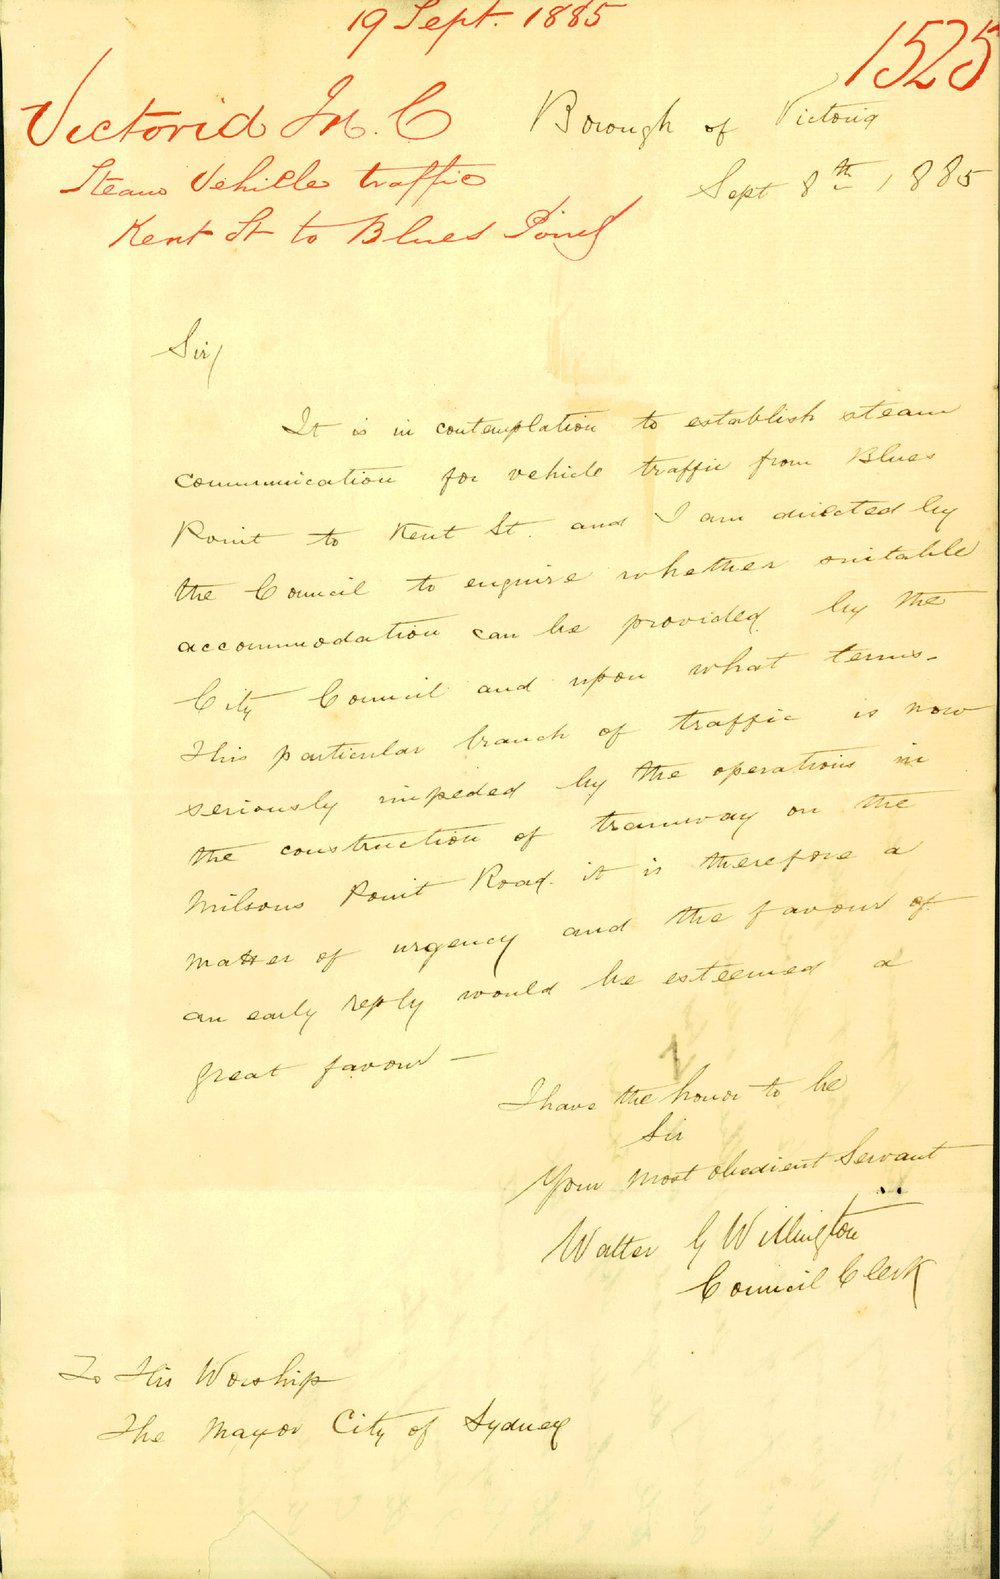 19 Sept. 1885
1525
Victoria M. C
Steam Vehicle traffic
Kent St to Blues Point
Borough of Victoria
Sept 8th 1885
Sir/
It is in contemplation to establish steam
communication for vehicle traffic from Blues
Point to Kent St. and I am directed by
the Council to enquire whether suitable
accommodation can be provided by the
City Council and upon what terms.
This particular branch of traffic is now
seriously impeded by the operations in
the construction of tramway on the
Milsons Point Road. it is therefore a
matter of urgency and the favour of
an early reply would be esteemed a
great favour —
I have the honor to be
Sir
Your most obedient Servant
Walter G Willington
Council Clerk
To His Worship
The Mayor City of Sydney